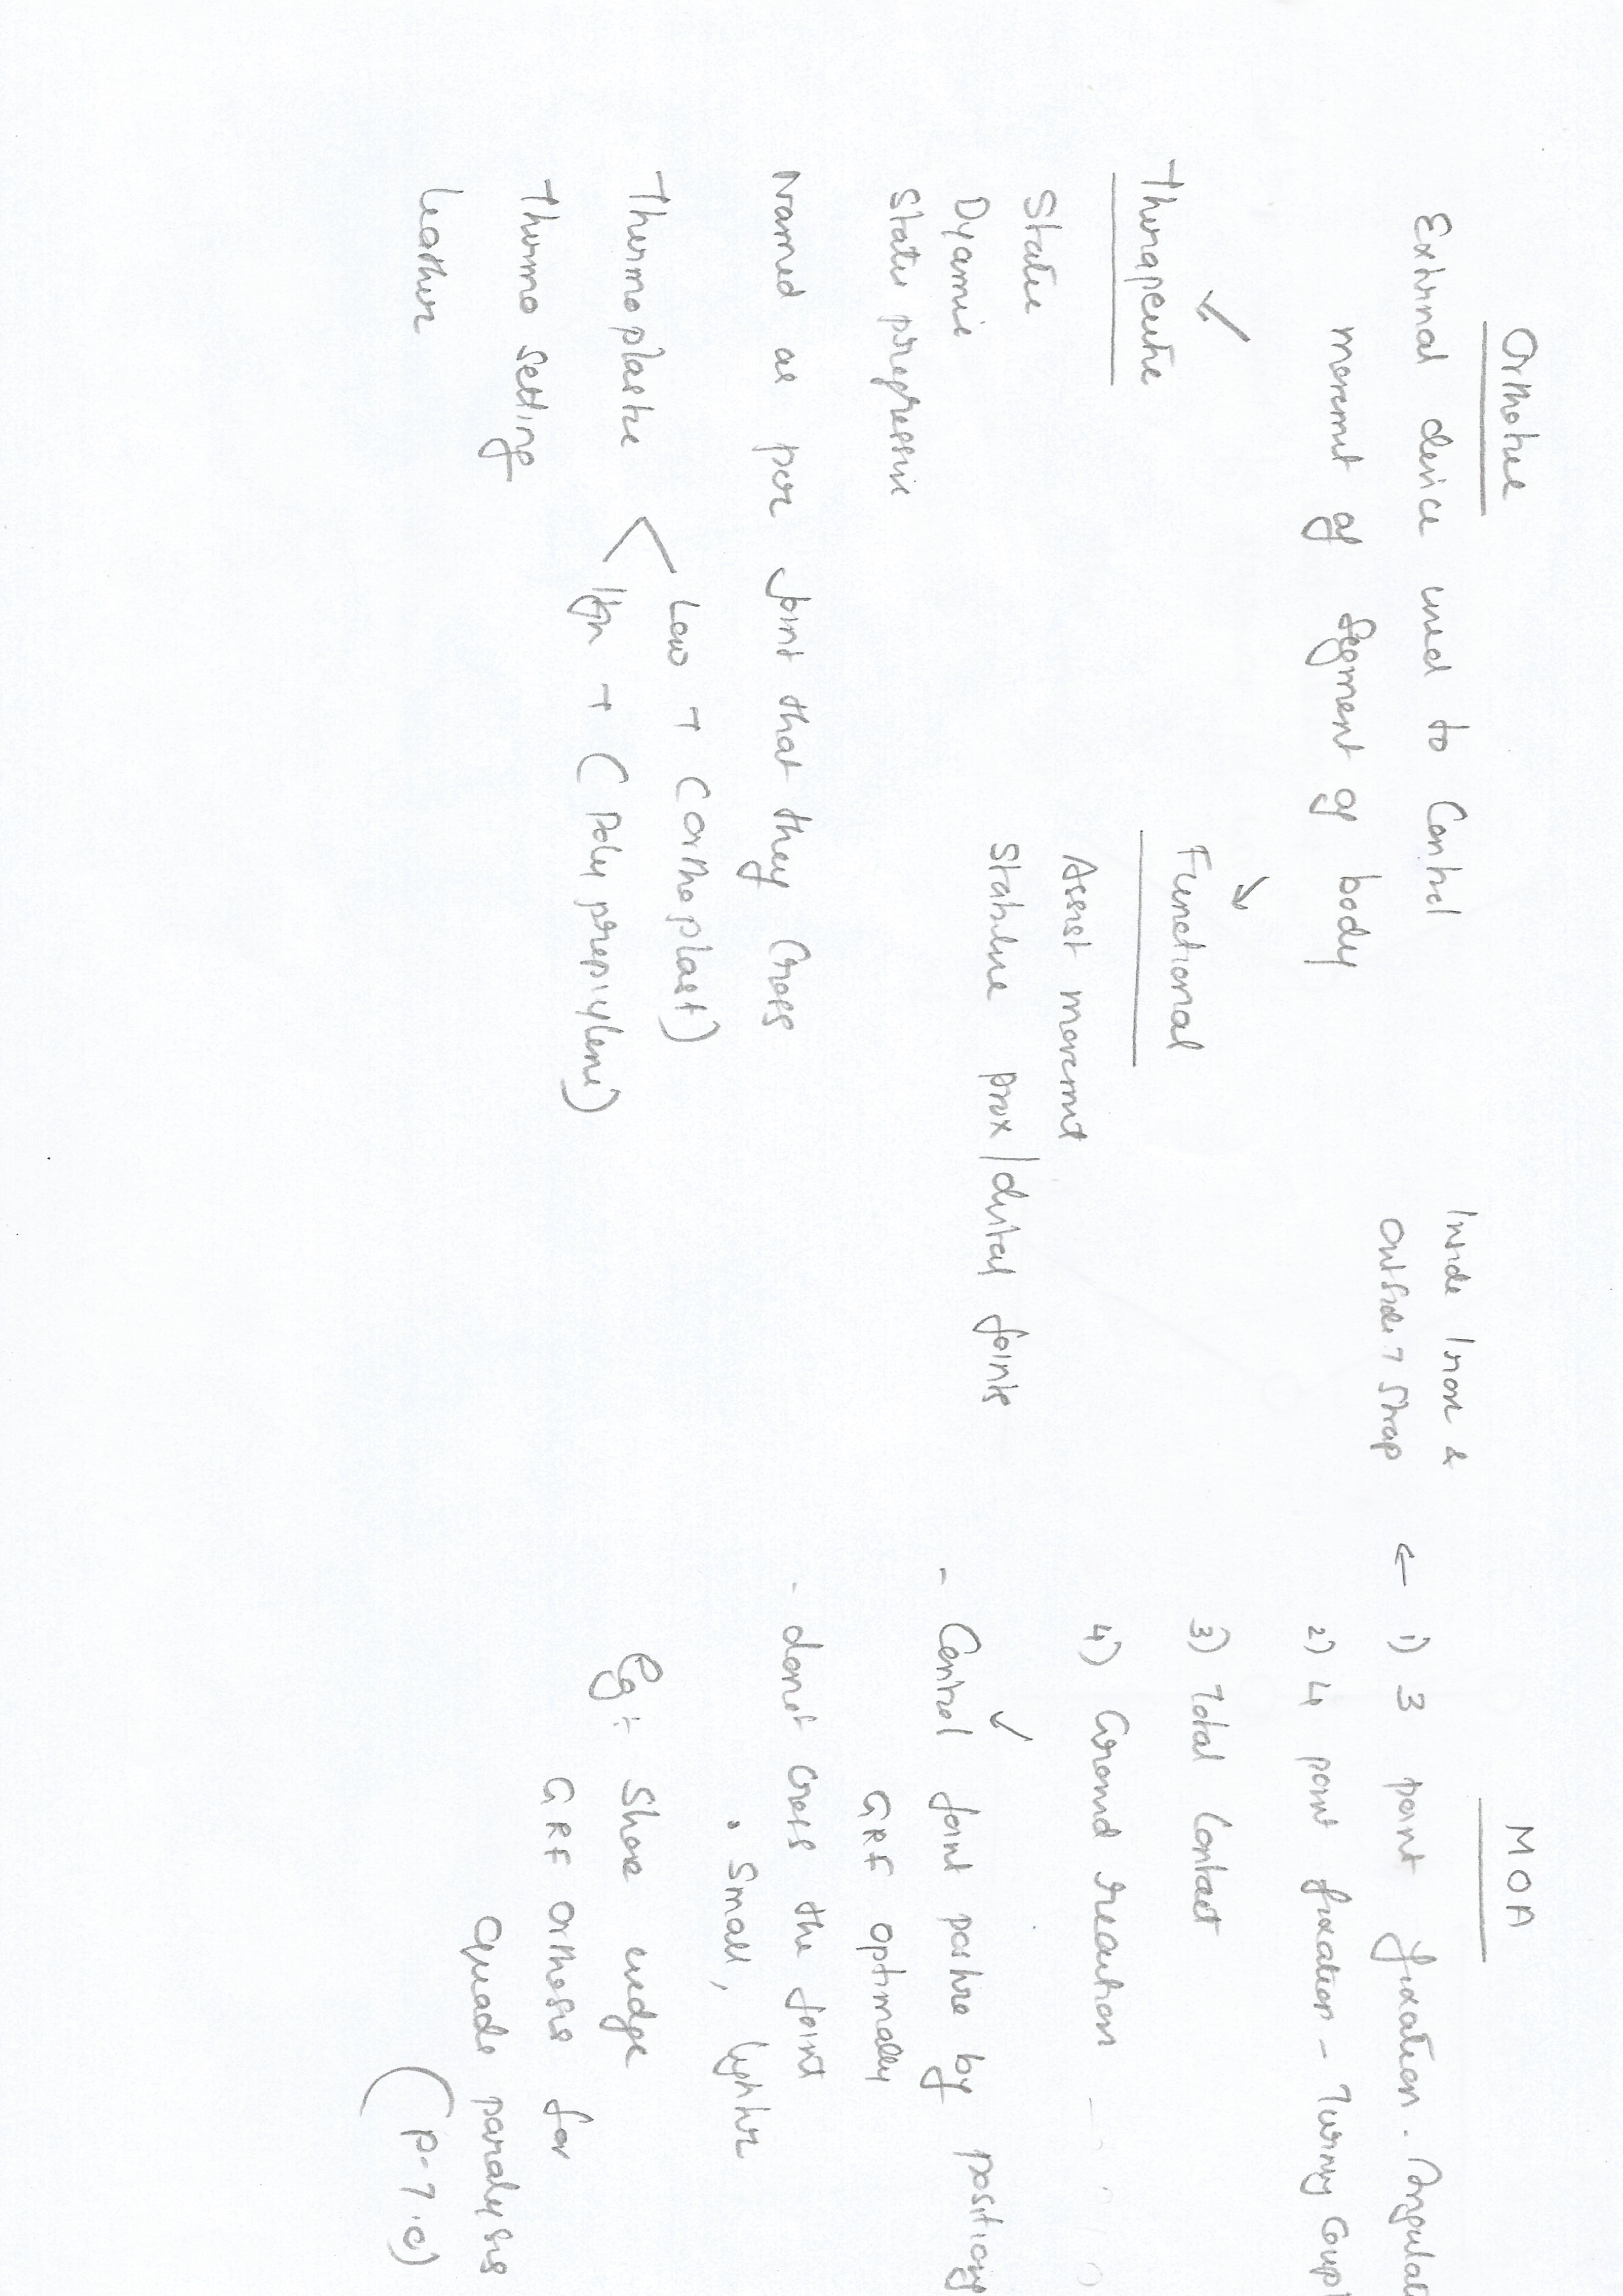 Orthotics
External device used to Control
movement of segment of body
Therapeutic
Static
Dyamic
Static progressive
Functional
Assist movement
Stabilise prox/distal joints
Named as per joint that they Cross
Thermoplastic < Low T (Orthoplast)
High T (Poly propylene)
Thermo setting
Leather
MOA
Inside Iron &
Outside T Strap
← 1) 3 point fixation. Angulat
2) 4 point fixation - Turning Coupl
3) Total Contact
4) Ground reaction
- Control joint posture by positiong
GRF optimally
- donot Cross the joint
• Small, lighter
Eg:- Shoe wedge
GRF Orthosis for
Quads paralysis
(P.T.O)